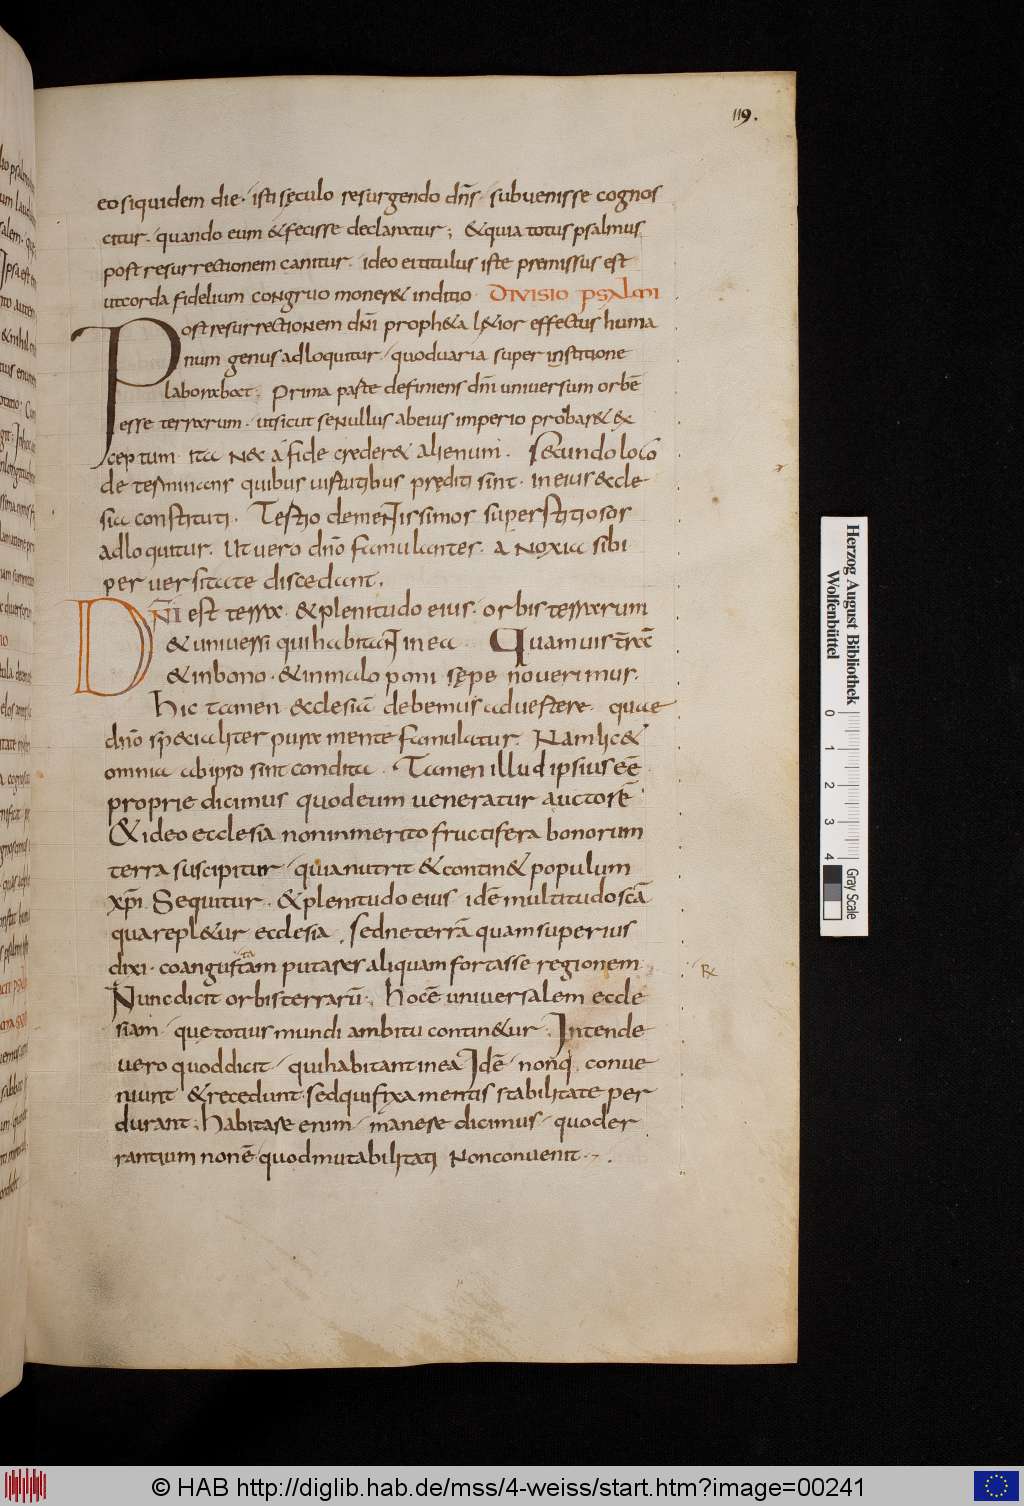 119.
eo siquidem die · isti sęculo resurgendo dn̄s · subuenisse cognos
citur · quando eum & fecisse declaratur ; & quia totus psalmus
post resurrectionem canitur · ideo ei titulus iste premissus est
ut corda fidelium congruo moner& inditio · DIVISIO PSALMI
Post resurrectionem dn̄i proph&a l&ior effectus huma
num genus adloquitur · quod uaria super institione
laborabat ; Prima parte definiens dn̄i uniuersum orbē
esse terrarum · ut sicut se nullus ab eius imperio probar& ex
ceptum · ita nec a fide creder& alienum · Secundo loco
de terminans quibus uirtutibus pręditi sint · in eius eccle
sia constituti · Tertio clementissimos superstitiosos
adloquitur · Ut uero dn̄o famulantes · a noxia sibi
peruersitate discedant ·
DN̄I est terra · & plenitudo eius · orbis terrarum
& uniuersi qui habitant in ea · Quamuis
& in bono · & in malo poni sępe nouerimus ·
hic tamen ecclesiā debemus aduertere · quae
dn̄o sp&ialiter pura mente famulatur · Nam lic&
omnia ab ipso sint condita · Tamen illud ipsius eē
proprie dicimus quod eum ueneratur auctorē
& ideo ecclesia non inmerito fructifera bonorum
terra suscipitur · quia nutrit & contin& populum
xp̄i · Sequitur · & plenitudo eius idē multitudo scā
qua repl&ur ecclesia · Sed ne terrā quam superius
dixi · coangustatam putares aliquam fortasse regionem
Nunc dicit orbis terrarū · hoc ē uniuersalem eccle
siam · quę totius mundi ambitu contin&ur · Intende
uero quod dicit · qui habitant in ea Idē · non q, conue
niunt & recedunt · sed qui fixa mentis stabilitate per
durant ; habitare enim · manere dicimus · quod er
rantium non ē quod mutabilitati non conuenit ·
Herzog August Bibliothek
Wolfenbüttel
0 1 2 3 4
Gray Scale
© HAB http://diglib.hab.de/mss/4-weiss/start.htm?image=00241